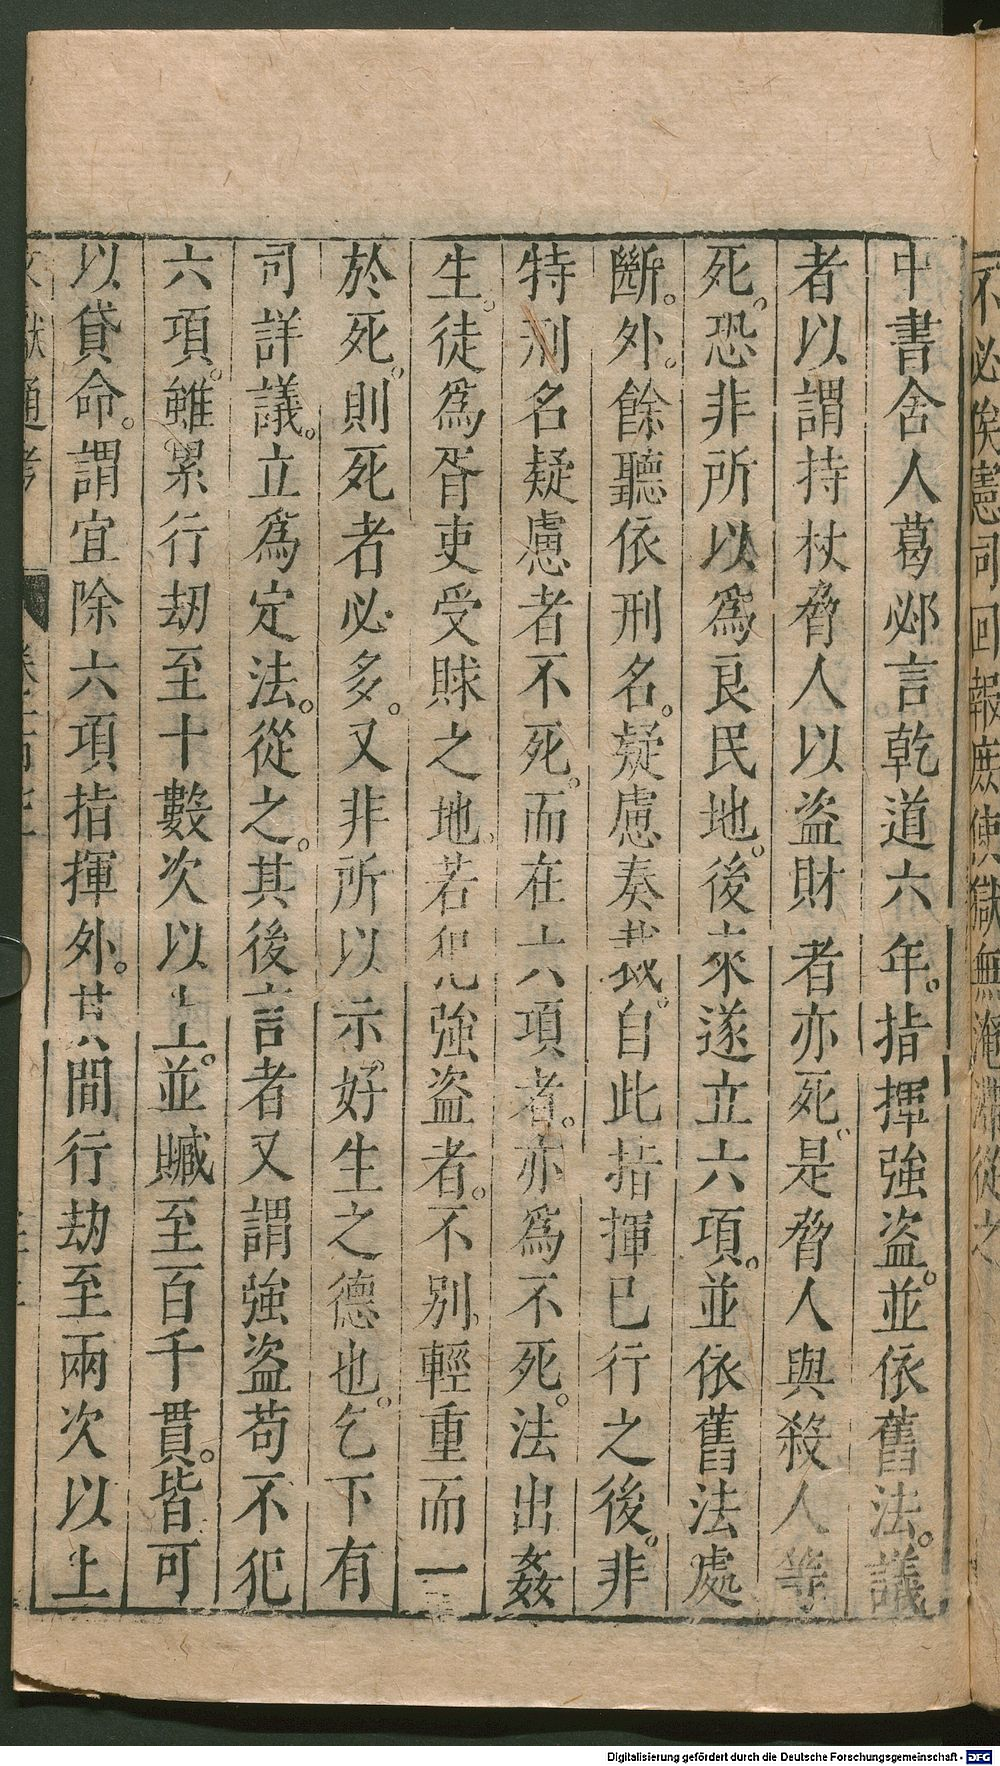 不必俟憲司回報庶使獄無淹滯從之
中書舍人葛邲言乾道六年。指揮強盜。並依舊法。議
者以謂持杖脅人以盜財者亦死。是脅人與殺人等
死。恐非所以為良民地。後來遂立六項。並依舊法處
斷。外。餘聽依刑名。疑慮奏裁。自此指揮已行之後。非
特刑名疑慮者不死。而在六項者。亦為不死。法出姦
生。徒為胥吏受賕之地。若犯強盜者。不別。輕重而一
於死。則死者必多。又非所以示。好生之德也。乞下有
司詳議。立為定法。從之。其後言者又謂強盜苟不犯
六項。雖累行刼至十數次以上。並贓至百千貫。皆可
以貸命。謂宜除六項指揮外。其間行劫至兩次以上
文獻通考
Digitalisierung gefördert durch die Deutsche Forschungsgemeinschaft - DFG